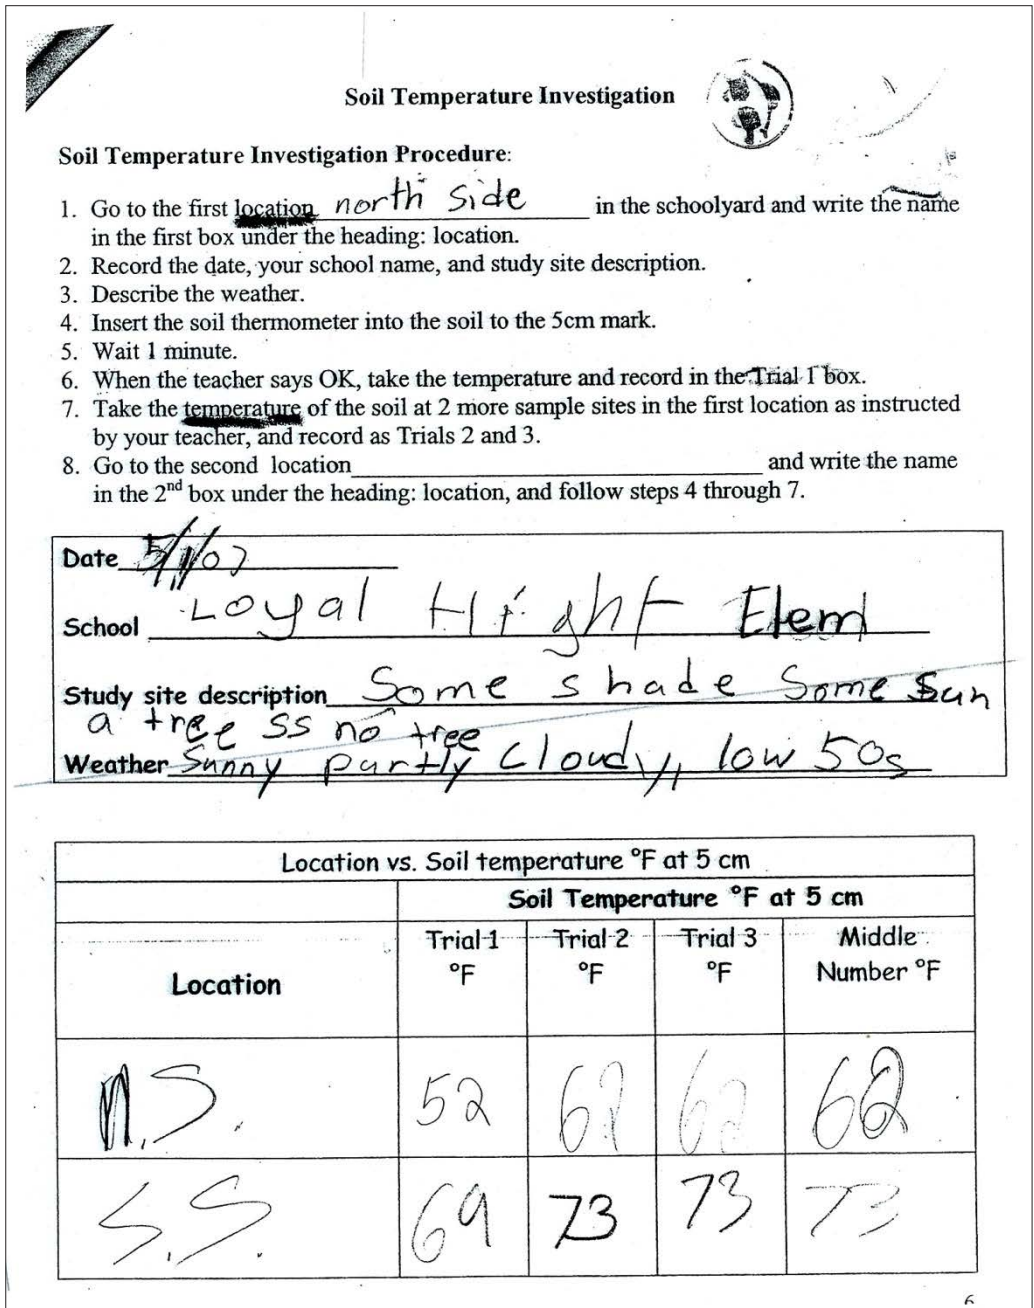 Soil Temperature Investigation
Soil Temperature Investigation Procedure:
1. Go to the first location north side in the schoolyard and write the name
in the first box under the heading: location.
2. Record the date, your school name, and study site description.
3. Describe the weather.
4. Insert the soil thermometer into the soil to the 5cm mark.
5. Wait 1 minute.
6. When the teacher says OK, take the temperature and record in the Trial 1 box.
7. Take the temperature of the soil at 2 more sample sites in the first location as instructed
by your teacher, and record as Trials 2 and 3.
8. Go to the second location and write the name
in the 2nd box under the heading: location, and follow steps 4 through 7.
Date 5/1/07
School Loyal Hight Elem
Study site description Some shade Some Sun
a tree SS no tree
Weather Sunny partly cloudy, low 50s
Location vs. Soil temperature °F at 5 cm
Soil Temperature °F at 5 cm
Location Trial 1 °F Trial 2 °F Trial 3 °F Middle Number °F
n.S. 52 62 62 62
S.S. 69 73 73 73
6